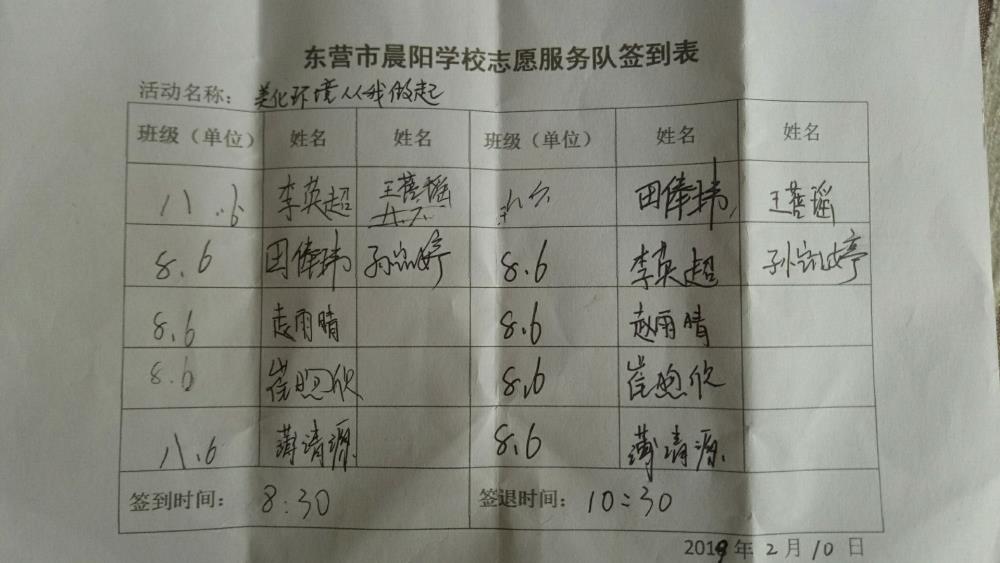 东营市晨阳学校志愿服务队签到表
活动名称：美化环境从我做起
班级（单位） 姓名 姓名 班级（单位） 姓名 姓名
八.6 李英超 王菩瑶 八六 田俸玮 王菩瑶
八.六
8.6 田俸玮 孙婷 8.6 李英超 孙婷
8.6 赵雨晴 8.6 赵雨晴
8.6 崔煦欣 8.6 崔煦欣
八.6 薄清源 8.6 薄清源
签到时间：8:30 签退时间：10:30
2019年2月10日